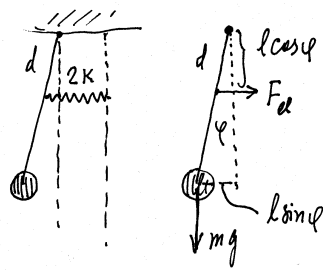 d
2K
d
l cosφ
F_el
φ
l sinφ
mg